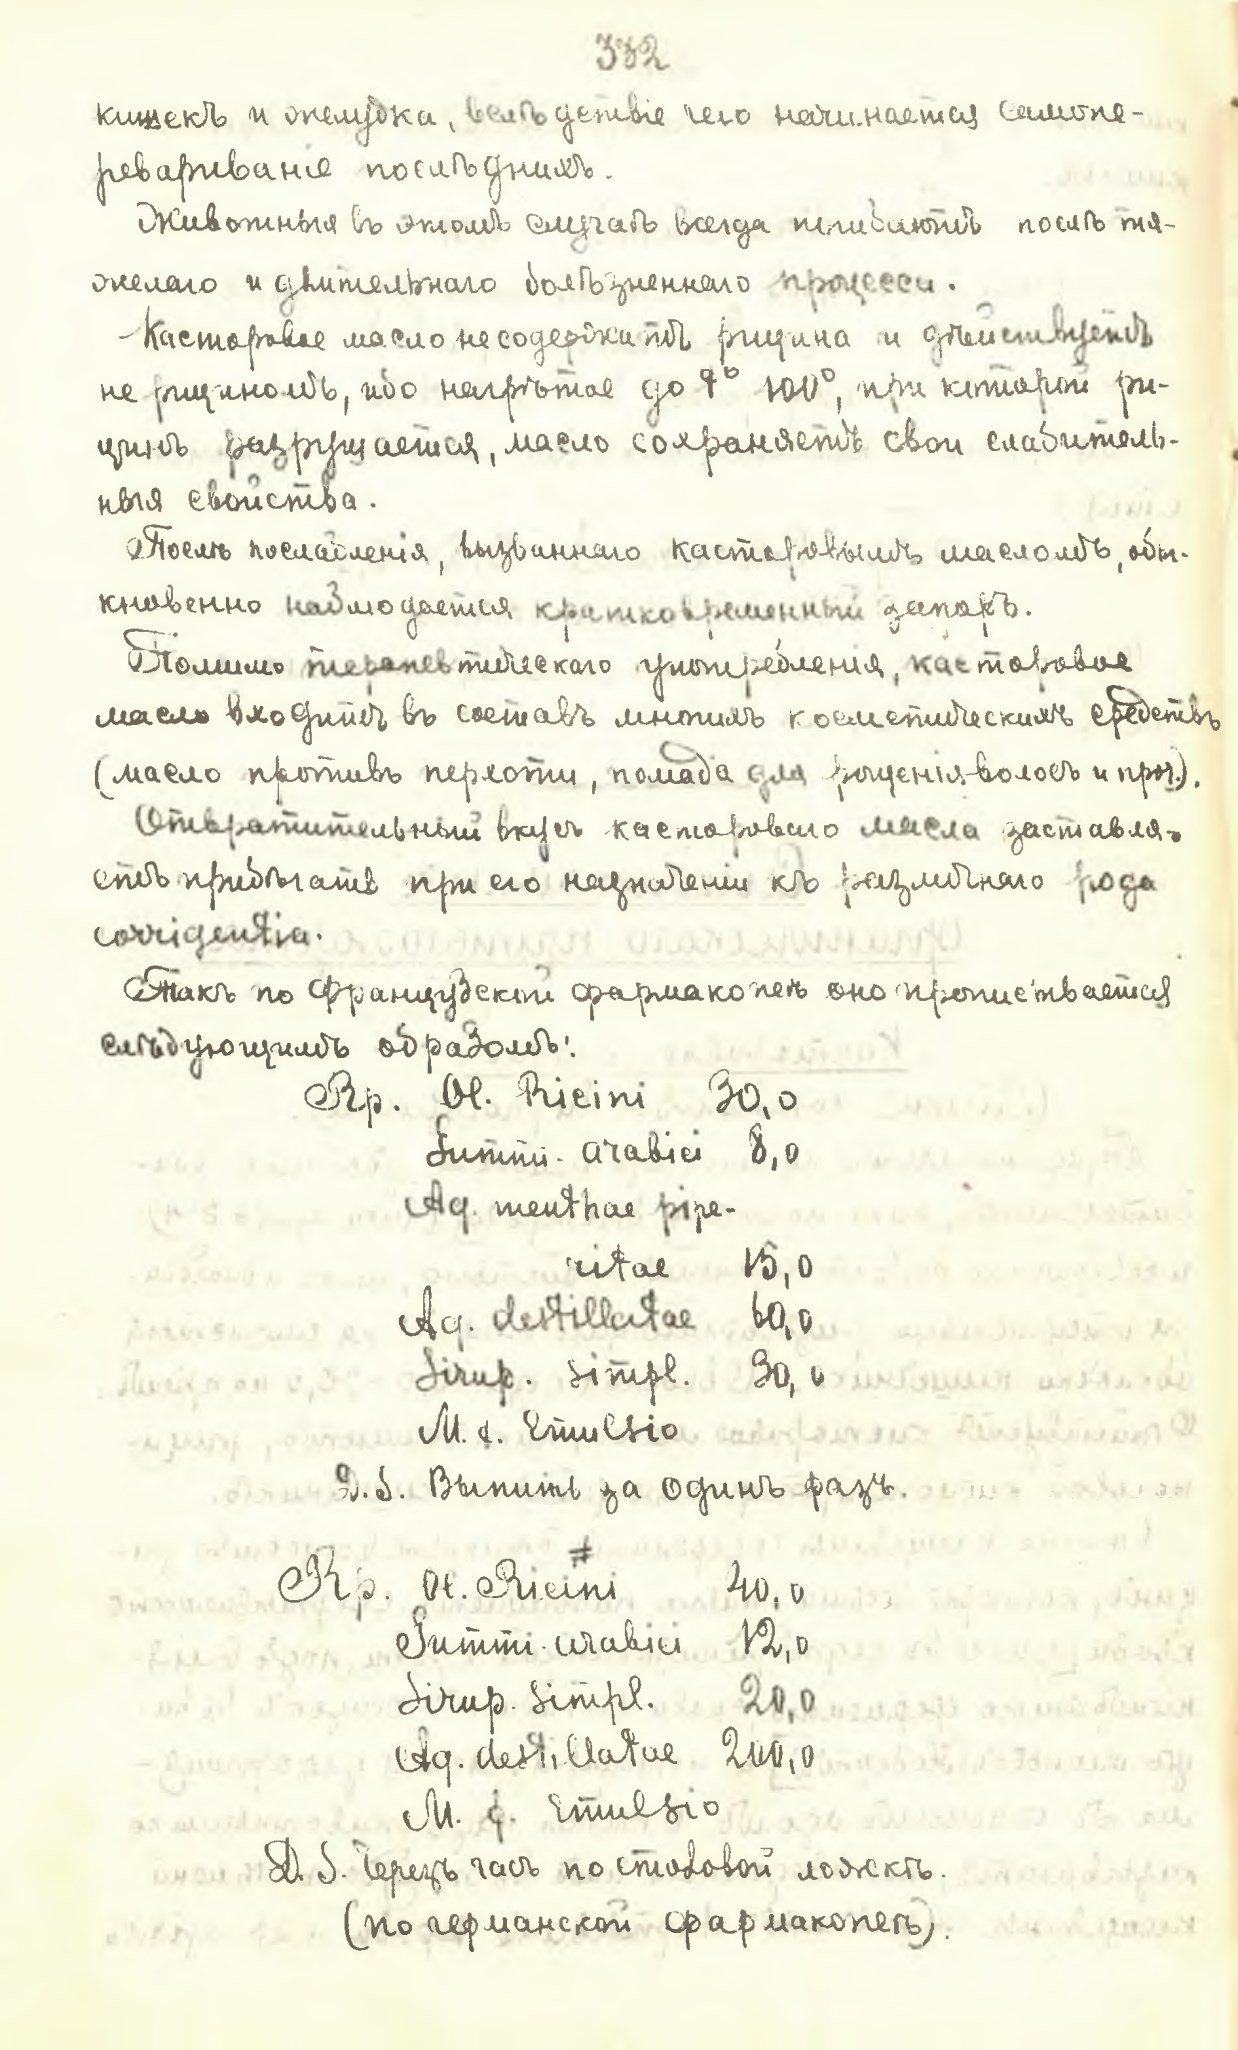 332
кишекъ и желудка, вслѣдствіе чего начинается самопе-
ревариваніе послѣднихъ.
Животныя въ этомъ случаѣ всегда погибаютъ послѣ тя-
желаго и длительнаго болѣзненнаго процесса.
Касторовое масло не содержитъ рицина и дѣйствуетъ
не рициномъ, ибо нагрѣтое до t° 100°, при которой ри-
цинъ разрушается, масло сохраняетъ свои слабитель-
ныя свойства.
Послѣ послабленія, вызваннаго касторовымъ масломъ, обы-
кновенно наблюдается кратковременный запоръ.
Помимо терапевтическаго употребленія, касторовое
масло входитъ въ составъ многихъ косметическихъ средствъ
(масло противъ перхоти, помада для рощенія волосъ и проч.).
Отвратительный вкусъ кастороваго масла заставля-
етъ прибѣгать при его назначеніи къ различнаго рода
corrigentia.
Такъ по Французской фармакопеѣ оно прописывается
слѣдующимъ образомъ:
Rp. Ol. Ricini 30,0
Gummi arabici 8,0
Aq. menthae pipe-
ritae 15,0
Aq. destillatae 60,0
Sirup. simpl. 30,0
M. f. Emulsio
D. S. Выпить за одинъ разъ.
#
Rp. Ol. Ricini 40,0
Gummi arabici 12,0
Sirup. simpl. 20,0
Aq. destillatae 200,0
M. f. Emulsio
D. S. Черезъ часъ по столовой ложкѣ.
(по германской фармакопеѣ).